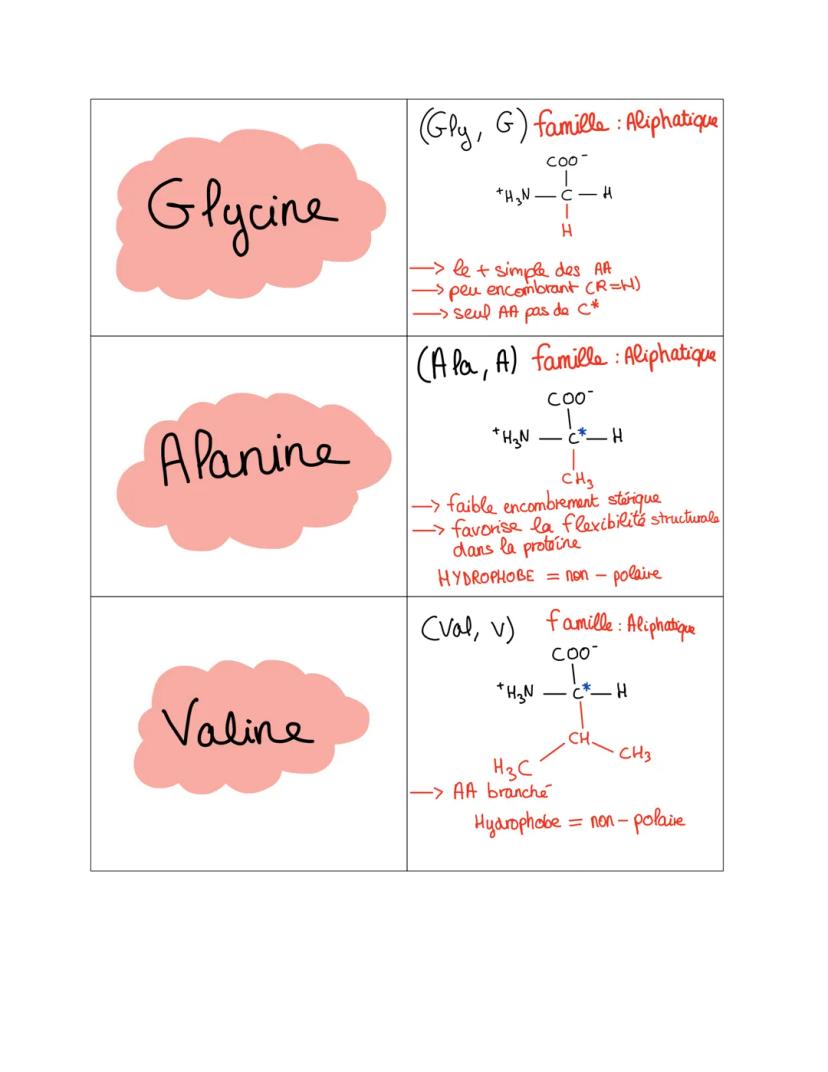 Glycine
(Gly, G) famille : Aliphatique
COO⁻
⁺H₃N — C — H
H
→ le + simple des AA
→ peu encombrant (R=H)
→ seul AA pas de C*
Alanine
(Ala, A) famille : Aliphatique
COO⁻
⁺H₃N — C* — H
CH₃
→ faible encombrement stérique
→ favorise la flexibilité structurale
dans la protéine
HYDROPHOBE = non - polaire
Valine
(Val, V) famille : Aliphatique
COO⁻
⁺H₃N — C* — H
CH
H₃C CH₃
→ AA branché
Hydrophobe = non - polaire